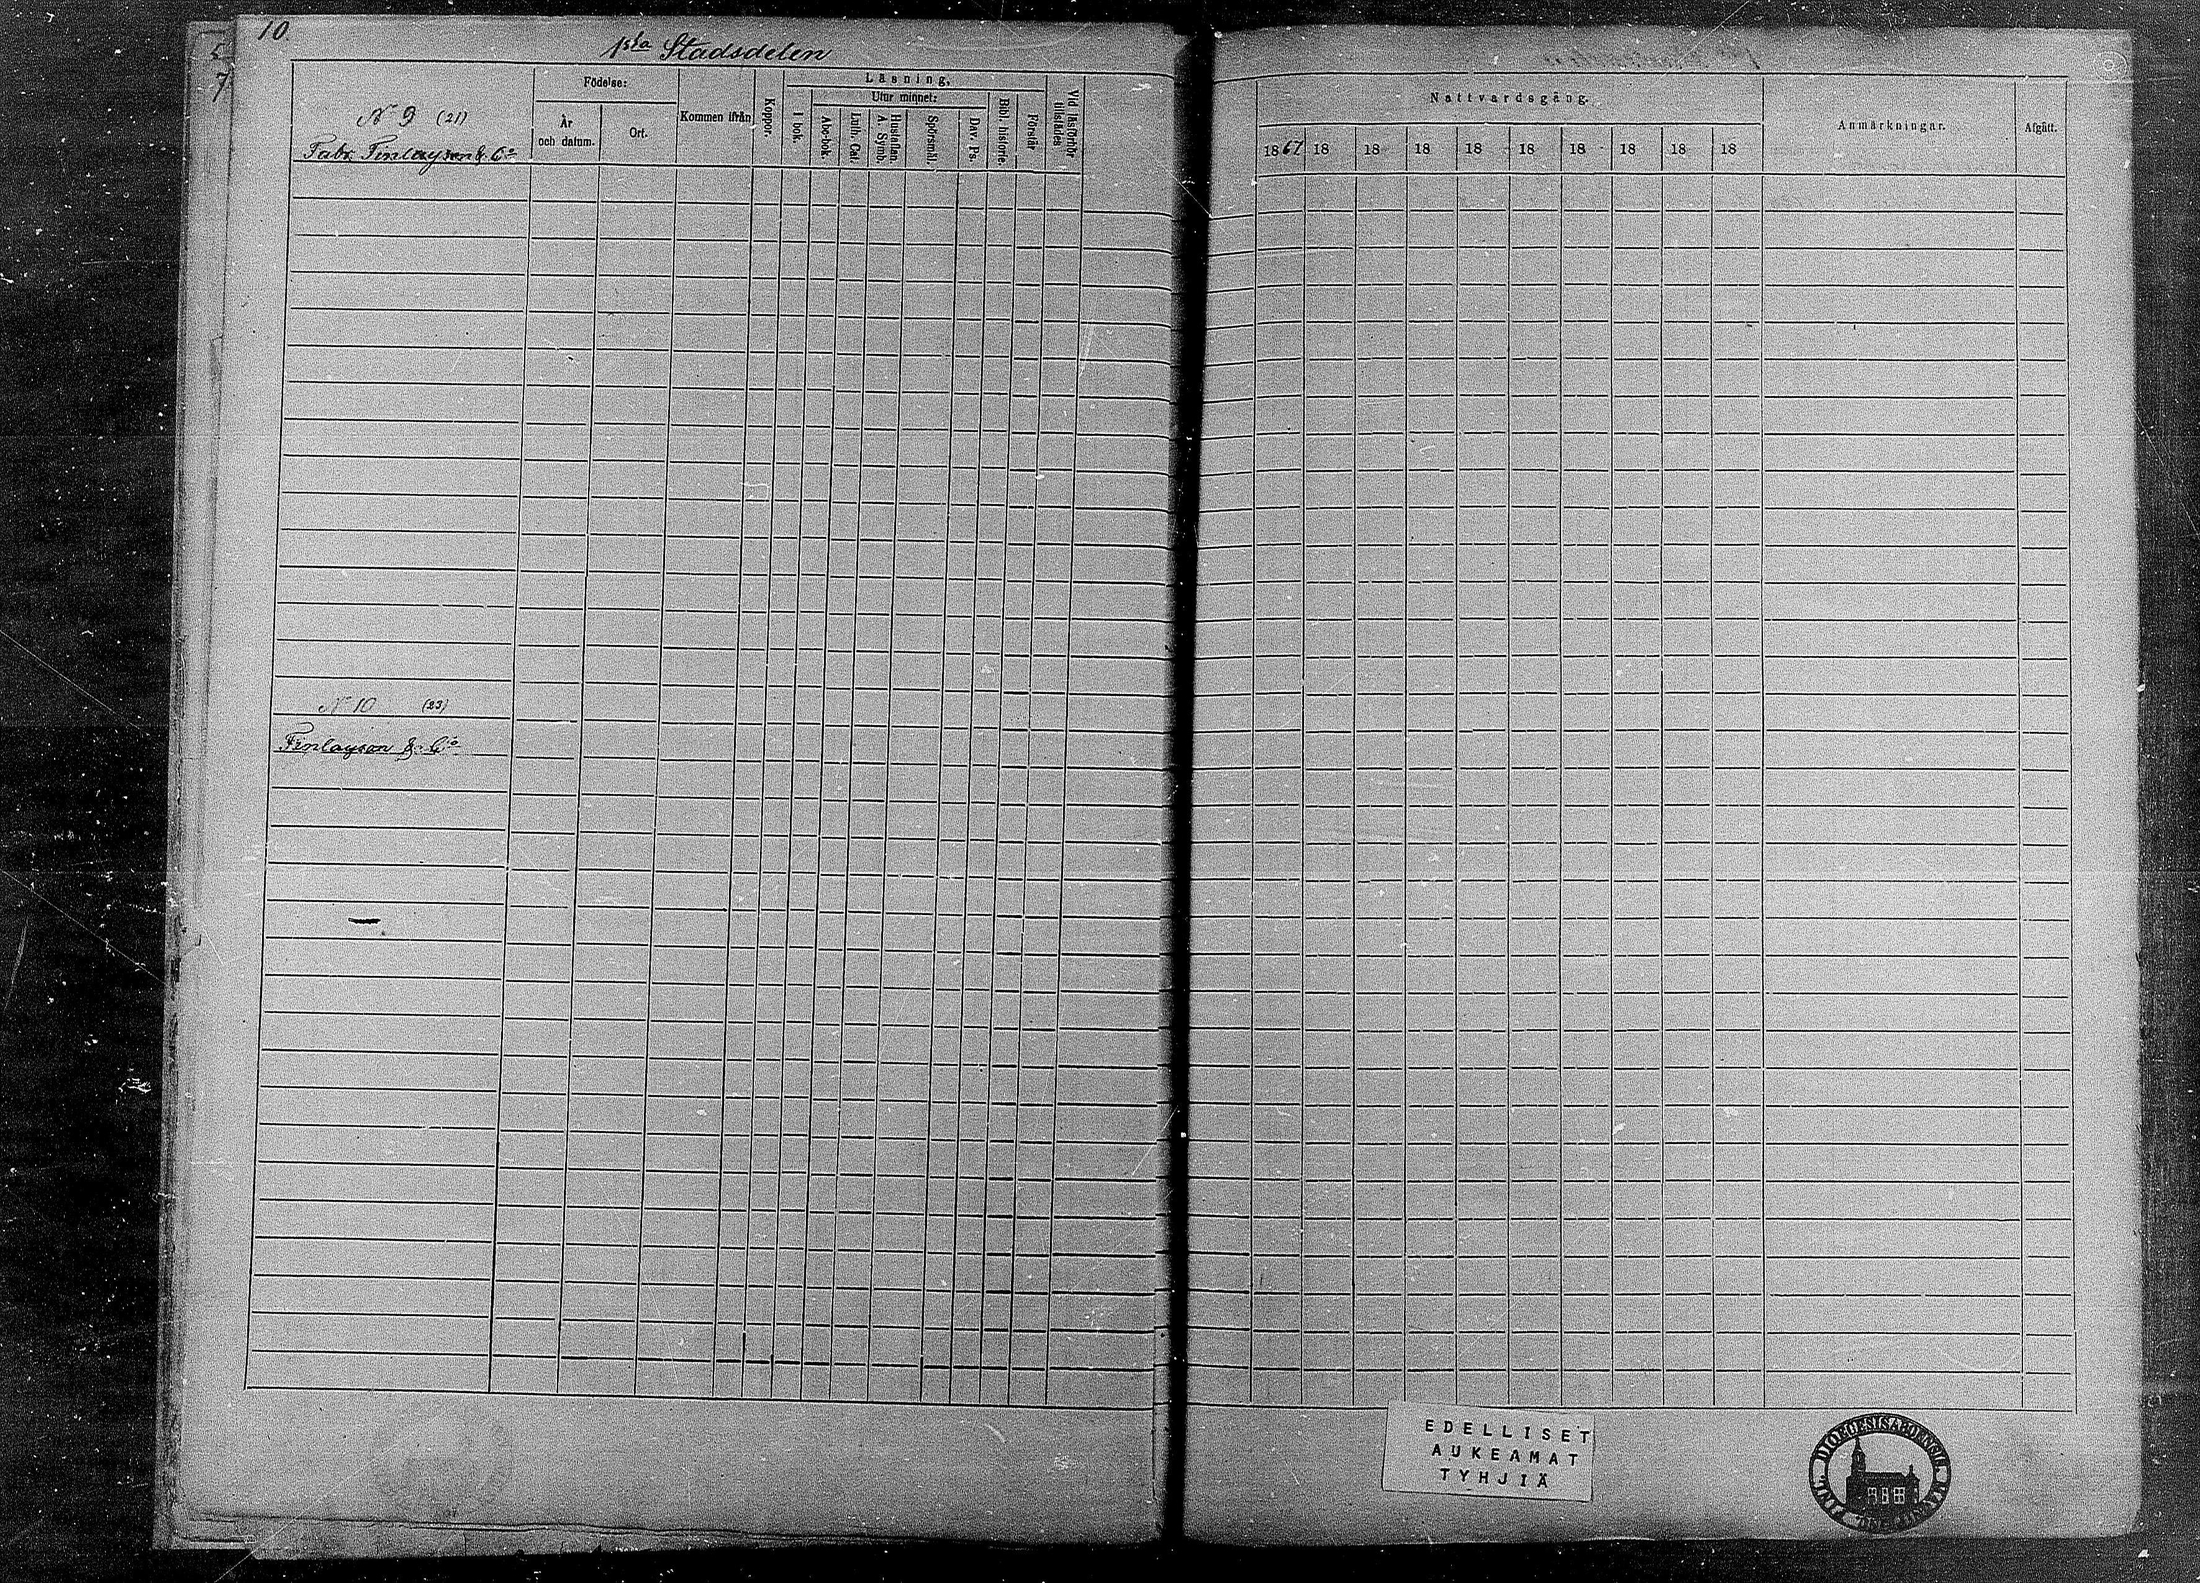 10
1sta Stadsdelen
N 9 (21)
Fabr. Finlayson & Co
Födelse:
År
och datum.
Ort.
Kommen ifrån
Koppor.
Läsning,
I bok.
Utur minnet:
Abc-bok.
Luth. Cat.
Hustaflan.
A. Symb.
Spörsmål.
Dav. Ps.
Bibl. historie.
Förstår
Vid läsförhör
tillstädes
N 10 (23)
Finlayson & Co
Nattvardsgång.
1867 18 18 18 18 18 18 18 18 18
Anmärkningar.
Afgått.
EDELLISET
AUKEAMAT
TYHJIÄ